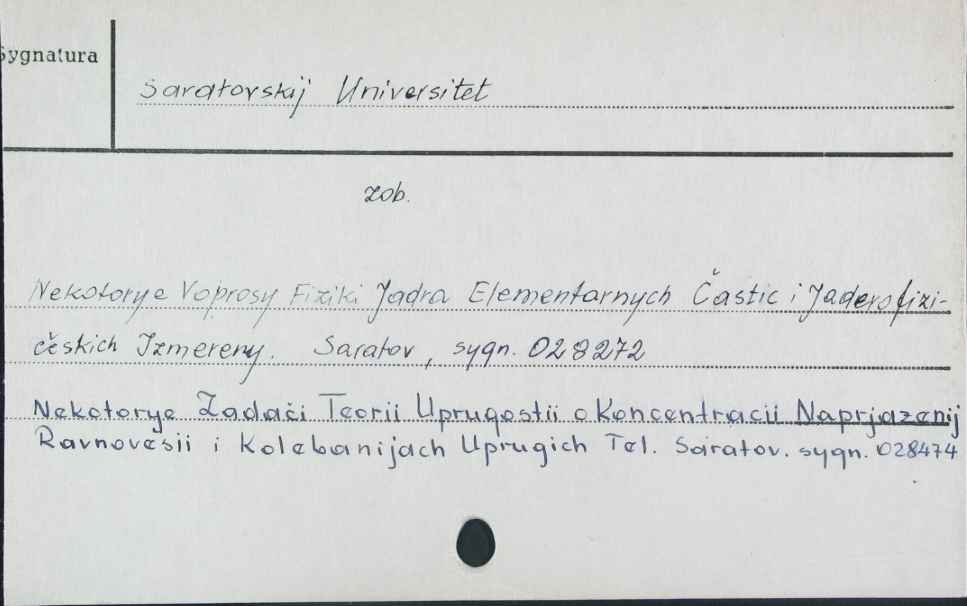 Sygnatura
Saratovskij Universitet
zob.
Nekotorye Voprosy Fiziki Jadra Elementarnych Častic i Jaderofizi-
českich Izmereny. Saratov, sygn. 028272
Nekotorye Zadači Teorii Uprugostii o Koncentracii Naprjazenij
Ravnovesii i Kolebanijach Uprugich Tel. Saratov. sygn. 028474